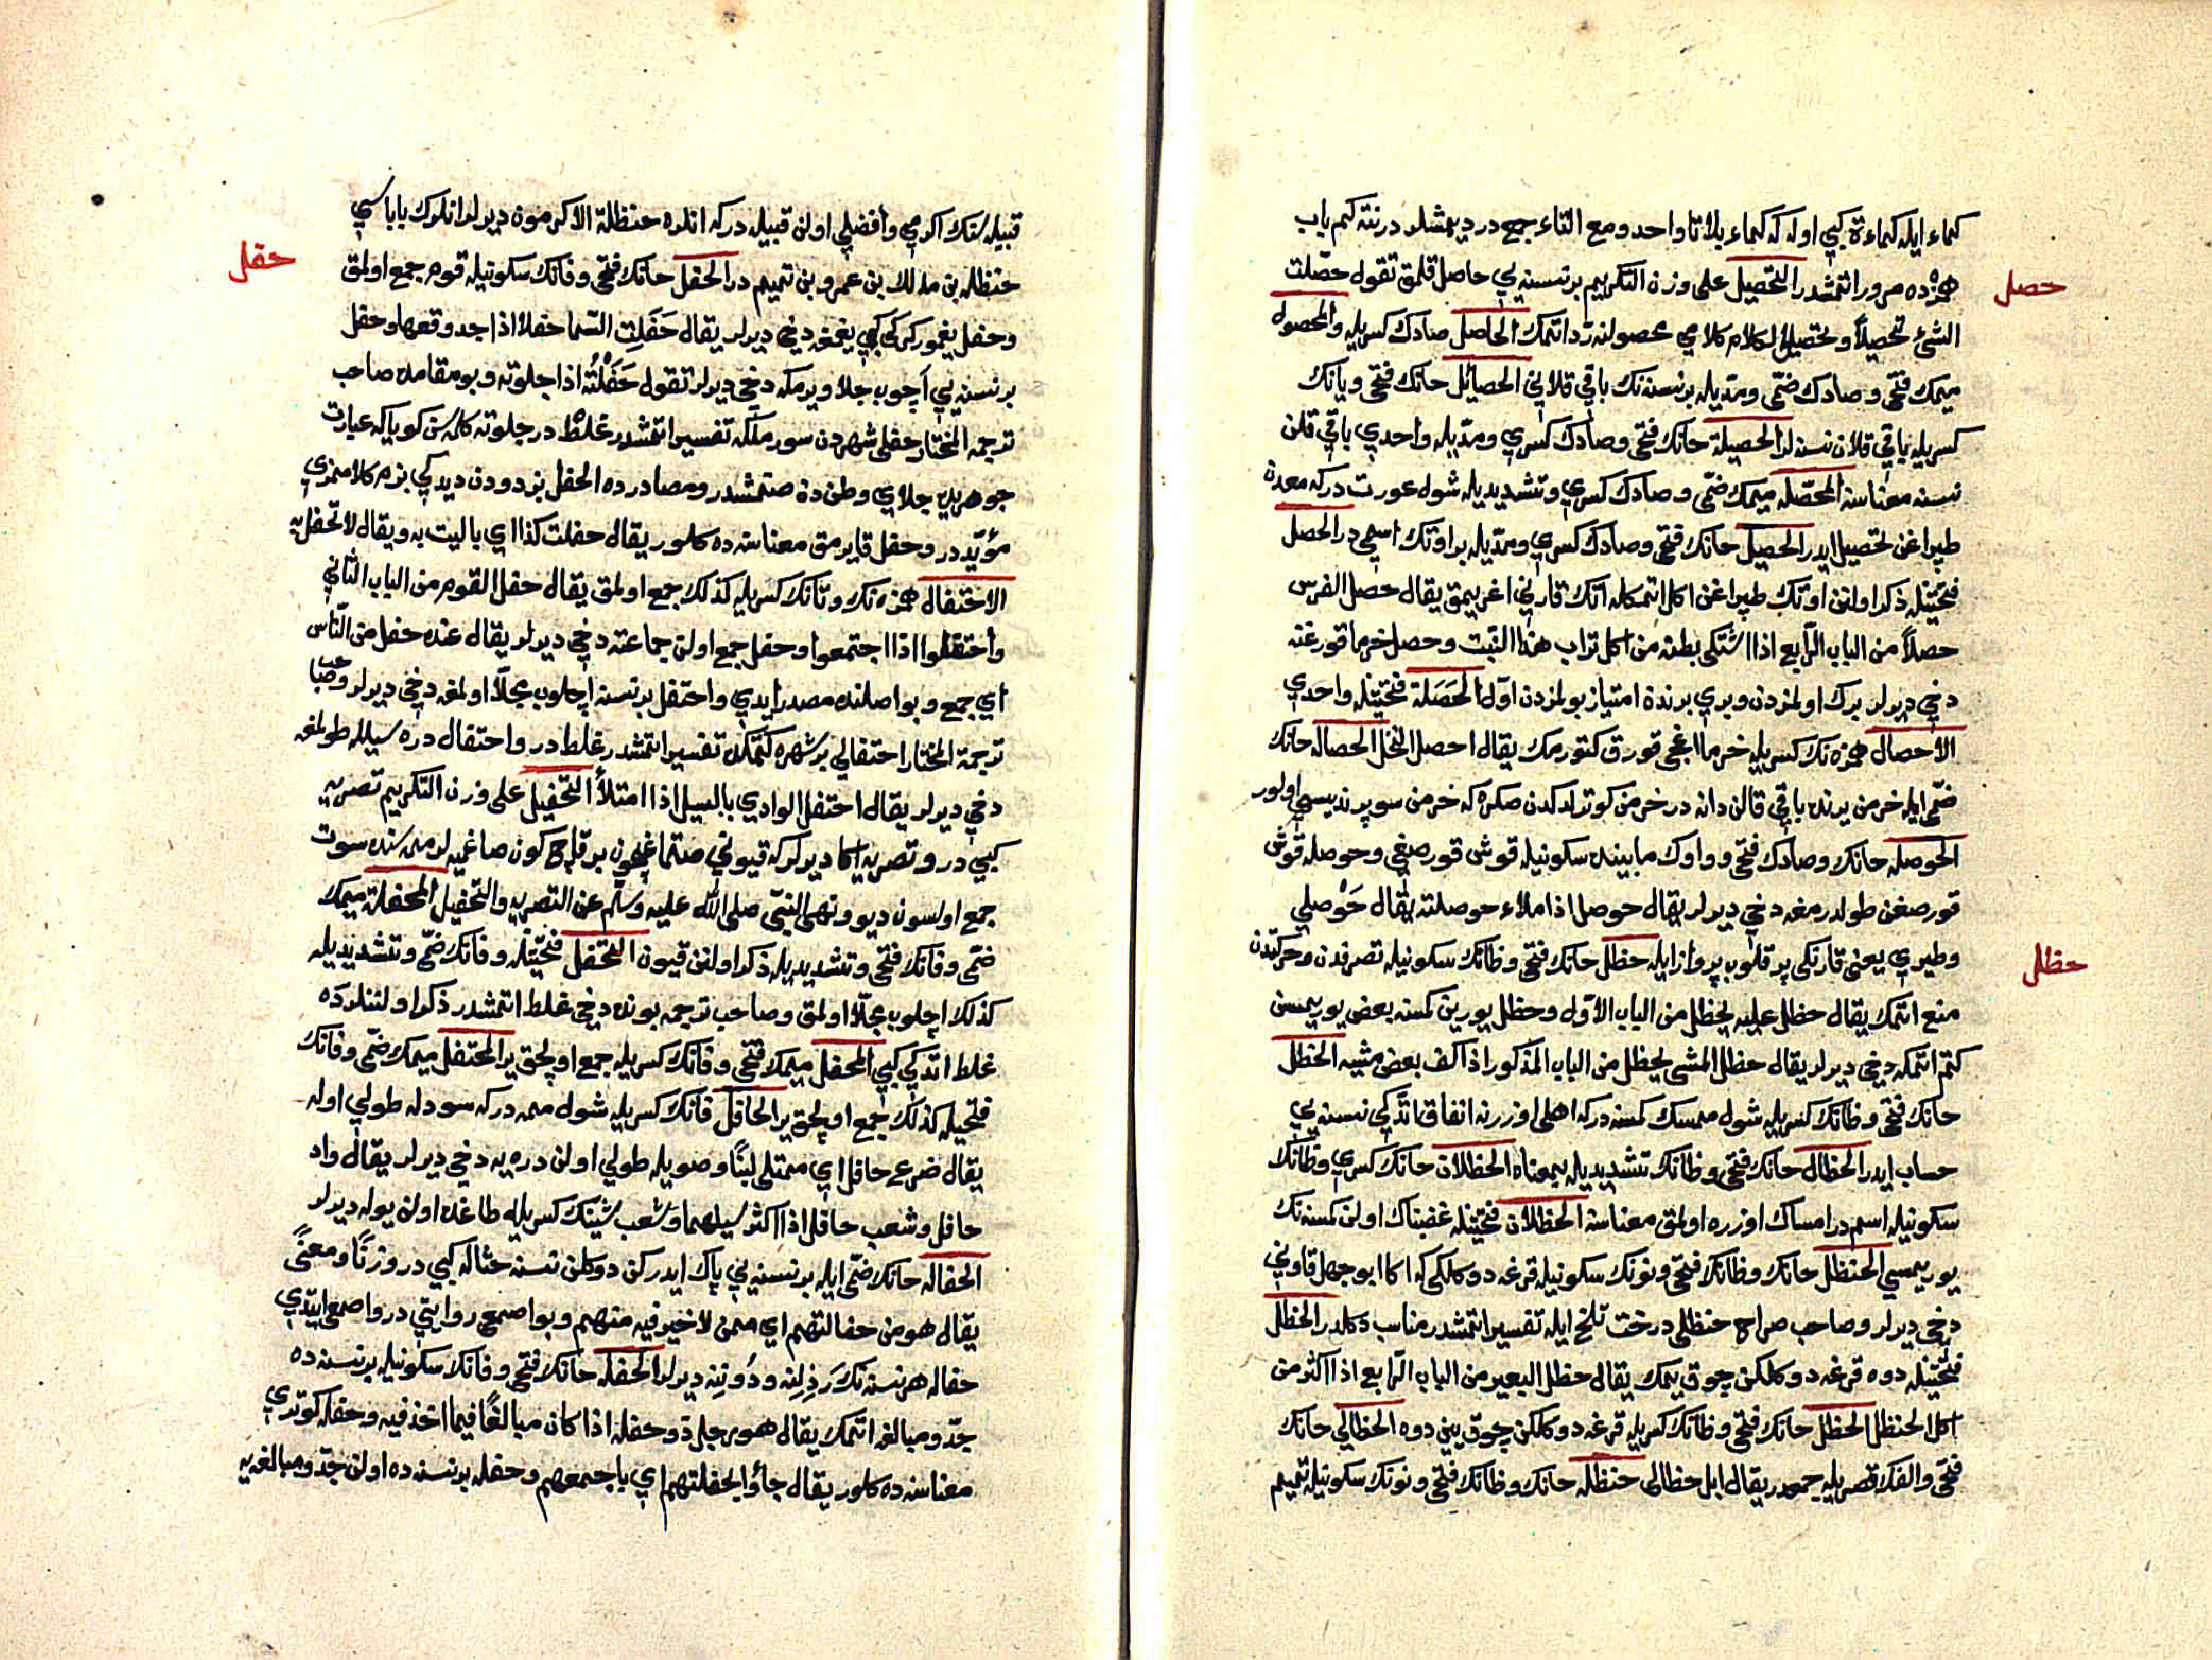 كماء ايله كماءة كبي اوله كه كماء بلا تا واحد ومع التاء جمع در ديمشلر درنته كم باب
حصل
همزه ده مرور اتمشدر التحصيل على وزن التكريم بر نسنه يي حاصل قلمق تقول حصّلت
الشئ تحصيلاً وتحصيل الكلام كلامي محصولنه ردّ اتمك الحاصل صادك كسريله والمحصول
ميمك فتحى وصادك ضمّى ومدّيله بر نسنه نك باقي قلاني الحصائل حانك فتحى ويانك
كسريله باقي قلان نسنه لر الحصيلة حانك فتحى وصادك كسري ومدّيله واحدي باقي قلن
نسنه معناسنه المحصّله ميمك ضمّى وصادك كسري وتشديديله شول عورت دركه معدن
طپراغن تحصيل ايدر الحصيل حانك فتحى وصادك كسري ومدّيله بر اوتك اسمي در الحصل
فتحتيله ذكر اولنن اوتك طپراغن اكل اتمكله اتك قارني اغريمق يقال حصل الفرس
حصلاً من الباب الرّابع اذا اشتكى بطنه من اكل تراب هذا النّبت وحصل خرما قورغنه
دخي ديرلر برك اولمزدن ويري برنده امتياز بولمزدن اوّل الحَصَلة فتحتيله واحدي
الاحصال همزه نك كسريله خرما اغجي قورق كتورمك يقال احصل النّخل الحصاله حانك
ضمّى ايله خرمن يرنده باقي قالن دانه در خرمن كوترلدكدن صكره كه خرمن سوپرنديسي اولور
الحوصله حانك وصادك فتحى وواوك مابينده سكونيله قوش قورصغي وحوصله قوش
قورصغن طولدرمغه دخي ديرلر يقال حوصل اذا ملاء حوصلته يقال حَوْصلي
حظل
وطيري يعني قارنكى پر قلوب پرواز ايله حظل حانك فتحى وظانك سكونيله تصرفدن وحركتدن
منع اتمك يقال حظل عليه يحظل من الباب الاوّل وحظل يورين كمسنه بعض يوريمسن
كتم اتمكه دخي ديرلر يقال حظل المشى يحظل من الباب المذكور اذا كف بعض مشيه الحظل
حانك فتحى وظانك كسريله شول ممسك كمسنه دركه اهلى اوزرينه انفاق اتدّكي نسنه يي
حساب ايدر الحظال حانك فتحى وظانك تشديديله بمعناه الحظلان حانك كسري وظانك
سكونيله اسم در امساك اوزره اولمق معناسنه الحظلان فتحتيله غضبناك اولن كمسنه نك
يوريمسي الحنظل حانك وظانك فتحى ونونك سكونيله قرغه دوكلكى كه اكا ابوجهل قاوني
دخي ديرلر وصاحب صراح حنظلى درخت تلخ ايله تفسير اتمشدر مناسب دكلدر الحظل
فتحتيله دوه قرغه دوكلكن چوق يمك يقال حظل البعير من الباب الرّابع اذا اكثر من
اكل الحنظل الحظل حانك فتحى وظانك كسريله قرغه دوكلكن چوق يين دوه الحظالي حانك
فتحى والفك قصريله جمعدر يقال ابل حظالى حنظله حانك وظانك فتحى ونونك سكونيله تميم
قبيله سنك اكرمي وافضلي اولن قبيله دركه انلره حنظلة الاكرمون ديرلر انلرك باباسي
حقل
حنظله بن مالك بن عمرو بن تميم در الحفل حانك فتحى وفانك سكونيله قوم جمع اولمق
وحفل يغمور كركي كبي يغمغه دخي ديرلر يقال حَفَلتِ السّما حفلا اذا جد وقعها وحفل
بر نسنه يي اچوب جلا ويرمكه دخي ديرلر تقول حَفَلْتُه اذا جلوته وبو مقامده صاحب
ترجمه المختار حفلى شهردن سورملكه تفسير اتمشدر غلط در جلوته كلمه سن كوياكه عبارت
جوهريده جلاي وطن دن صنمشدر ومصادرده الحفل بزدودن ديدكي بزم كلامنزي
مؤيّد در وحفل قايرمق معناسنه ده كلور يقال حفلت كذا اي باليت به ويقال لا تحفل به
الاحتفال همزه نك وتانك كسريله كذلك جمع اولمق يقال حفل القوم من الباب الثّاني
واحتفلوا اذا اجتمعوا وحفل جمع اولن جماعته دخي ديرلر يقال عنده حفل من النّاس
اي جمع وبو اصلنده مصدر ايدي واحتفل بر نسنه اچلوب مجلّا اولمغه دخي ديرلر وصاحب
ترجمة المختار احتفالي بر شهره كتمكله تفسير اتمشدر غلط در واحتفال دره سيلله طولمغه
دخي ديرلر يقال احتفل الوادي بالسيل اذا امتلأ التّحفيل على وزن التكريم تصريه
كبي در وتصريه اكا ديرلركه قيوني صتماغيچون بر قاچ كون صاغميه لر ممه سنده سوت
جمع اولسون ديو ونهى النبّى صلى الله عليه وسلّم عن التصريه والتّحفيل المحفلة ميمك
ضمّى وفانك فتحى وتشديديله ذكر اولنن قيون التحفل فتحتيله وفانك ضمّى وتشديديله
كذلك اچلوب مجلّا اولمق وصاحب ترجمه بونده دخي غلط اتمشدر ذكر اولننلرده
غلط اتدكي كبي المحفل ميمك فتحى وفانك كسريله جمع اولجق ير المحتفل ميمك ضمّى وفانك
فتحيله كذلك جمع اولجق ير الحافل فانك كسريله شول ممه دركه سودله طولي اوله
يقال ضرع حافل اي ممتلى لبنًا وصويله طولي اولن دره يه دخي ديرلر يقال واد
حافل وشعب حافل اذا اكثر سيلهما وشعب شينك كسريله طاغده اولن يوله ديرلر
الحفاله حانك ضمّى ايله بر نسنه يي پاك ايدركن دوكلن نسنه حثاله كبي در وزنًا ومعنًى
يقال هو من حفالتهم اي ممن لا خير فيه منهم وبو اصمعي روايتي در واصمعي ايتدّي
حفاله هر نسنه نك رَذِلِنه ودُونِنه ديرلر الحفله حانك فتحى وفانك سكونيله بر نسنه ده
جدّ ومبالغه اتمك يقال هو رجل ذو حفله اذا كان مبالغًا فيما اخذ فيه وحفله كوتري
معناسنه ده كلور يقال جاؤا بحفلتهم اي باجمعهم وحفله بر نسنه ده اولن جدّ ومبالغه يه